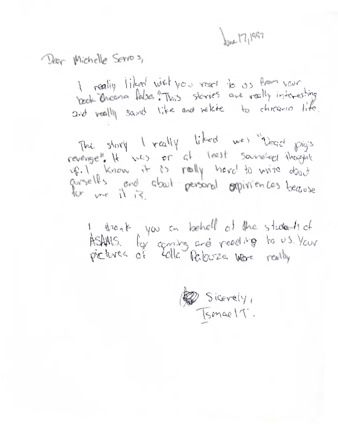 June 17, 1997
Dear Michelle Serros,
I really liked what you read to us from your
book "Chicana Falsa". This stories are really interesting
and really sound like and relate to chicanin life
The story I really liked was "Dead pig's
revenge". It was or at least sounded thought
up. I know it is really hard to write about
ourselfs and about personal expiriences because
for me it is.
I thank you on behalf of the students of
ASAMS. for coming and reading to us. Your
pictures of Lolla Palouza were really
Sicerely,
Ismael T.